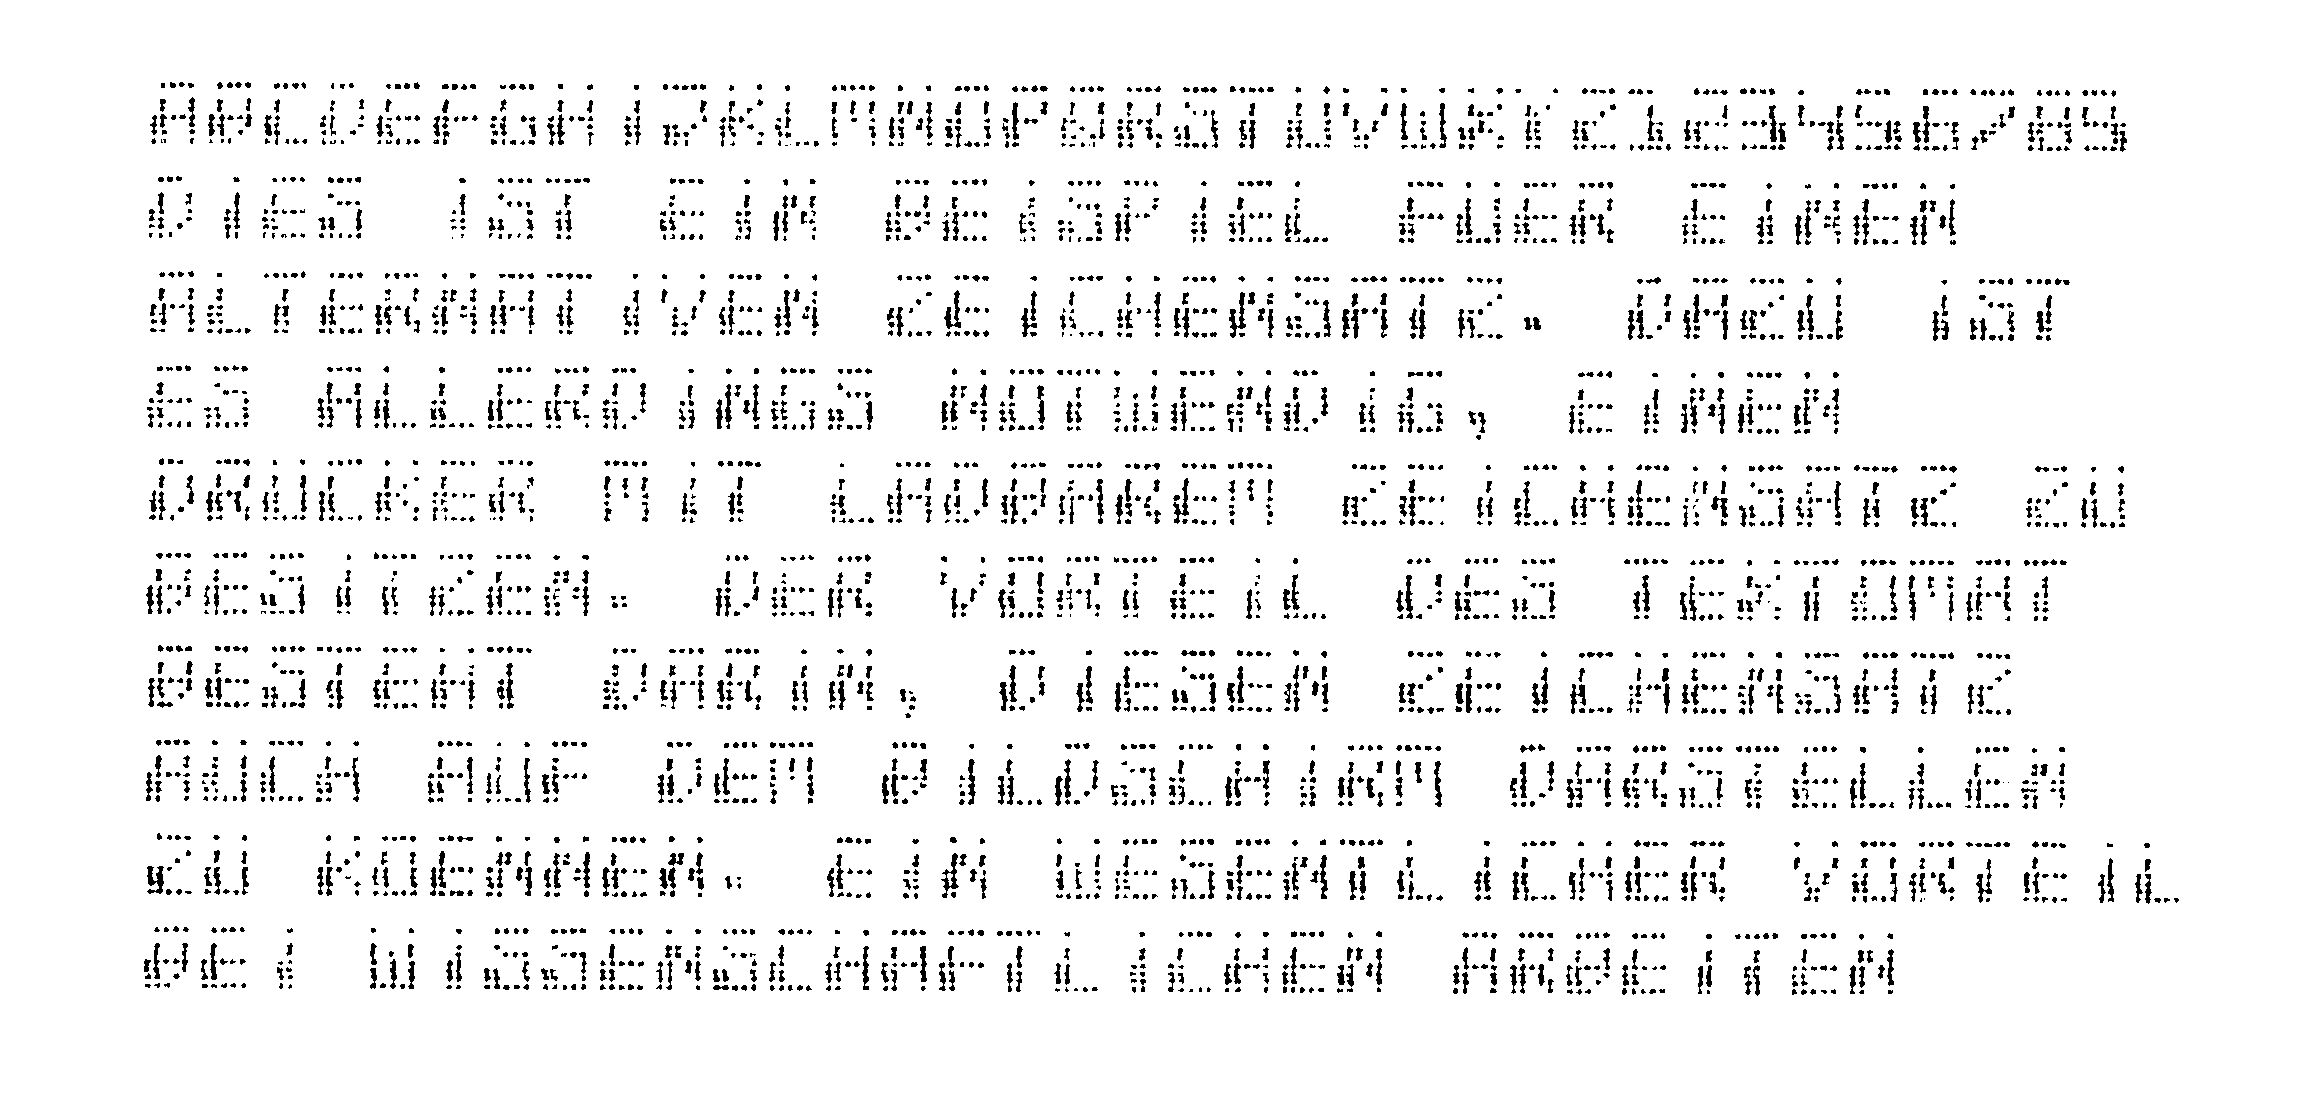 ABCDEFGHIJKLMNOPQRSTUVWXYZ123456789
DIES IST EIN BEISPIEL FUER EINEN
ALTERNATIVEN ZEICHENSATZ. DAZU IST
ES ALLERDINGS NOTWENDIG, EINEN
DRUCKER MIT LADBAREM ZEICHENSATZ ZU
BESITZEN. DER VORTEIL DES TEXTOMAT
BESTEHT DARIN, DIESEN ZEICHENSATZ
AUCH AUF DEM BILDSCHIRM DARSTELLEN
ZU KOENNEN. EIN WESENTLICHER VORTEIL
BEI WISSENSCHAFTLICHEN ARBEITEN